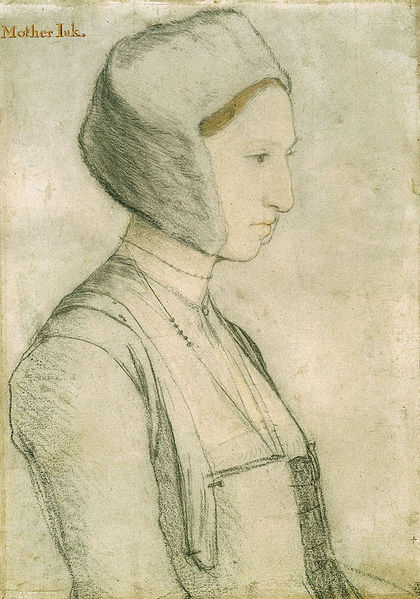 Mother Iak.